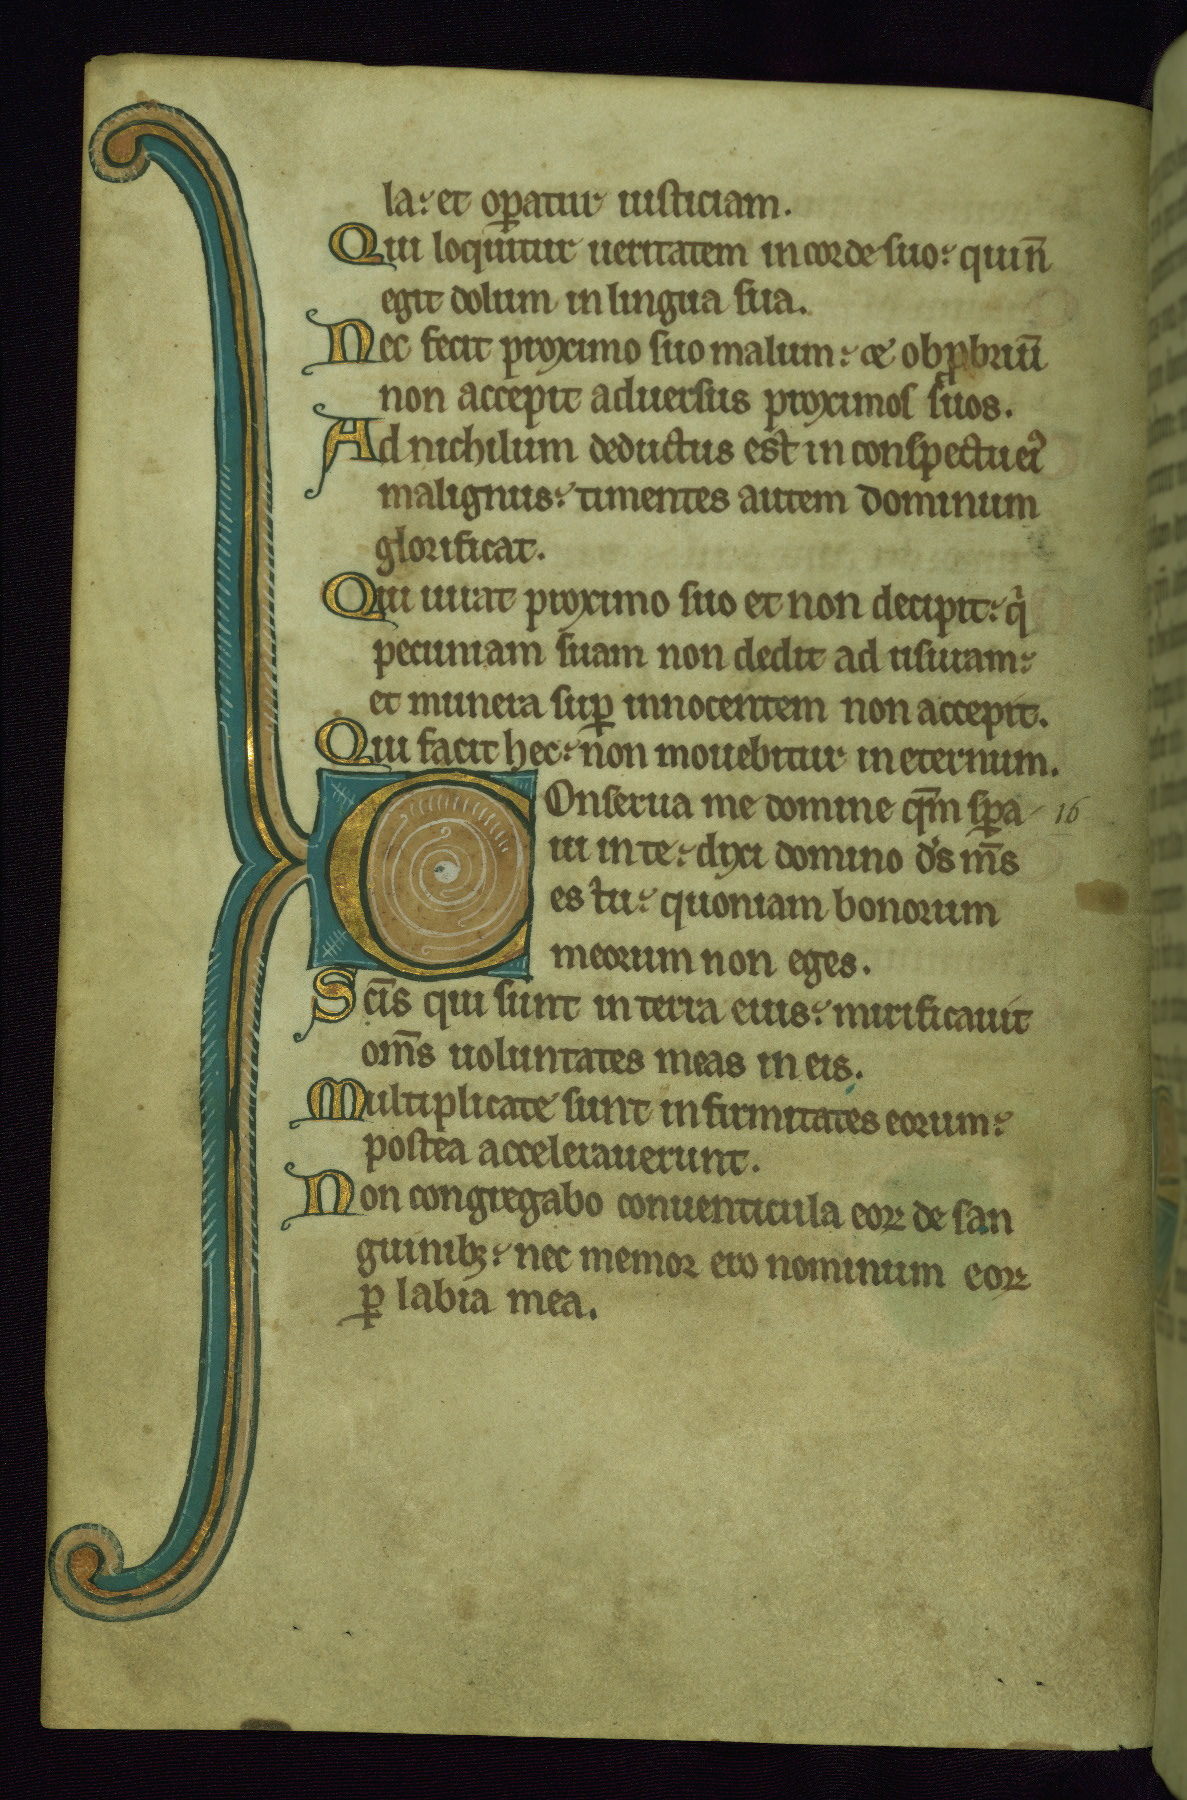 la: et oꝑatur iusticiam.
Qui loquitur ueritatem in corde suo: qui n̄
egit dolum in lingua sua.
Nec fecit proximo suo malum: & obꝓbriū
non accepit aduersus proximos suos.
Ad nichilum deductus est in conspectu eiꝰ
malignus: timentes autem dominum
glorificat.
Qui iurat proximo suo et non decipit: qⁱ
pecuniam suam non dedit ad usuram:
et munera suꝑ innocentem non accepit.
Qui facit hec: non mouebitur in eternum.
Conserua me domine qm̄ sꝑa 16
ui in te: dixi domino ds̄ ms̄
es tu: quoniam bonorum
meorum non eges.
Scīs qui sunt in terra eius: mirificauit
om̄s uoluntates meas in eis.
Multiplicate sunt infirmitates eorum:
postea accelerauerunt.
Non congregabo conuenticula eoꝝ de san
guinibꝫ: nec memor ero nominum eoꝝ
ꝑ labia mea.